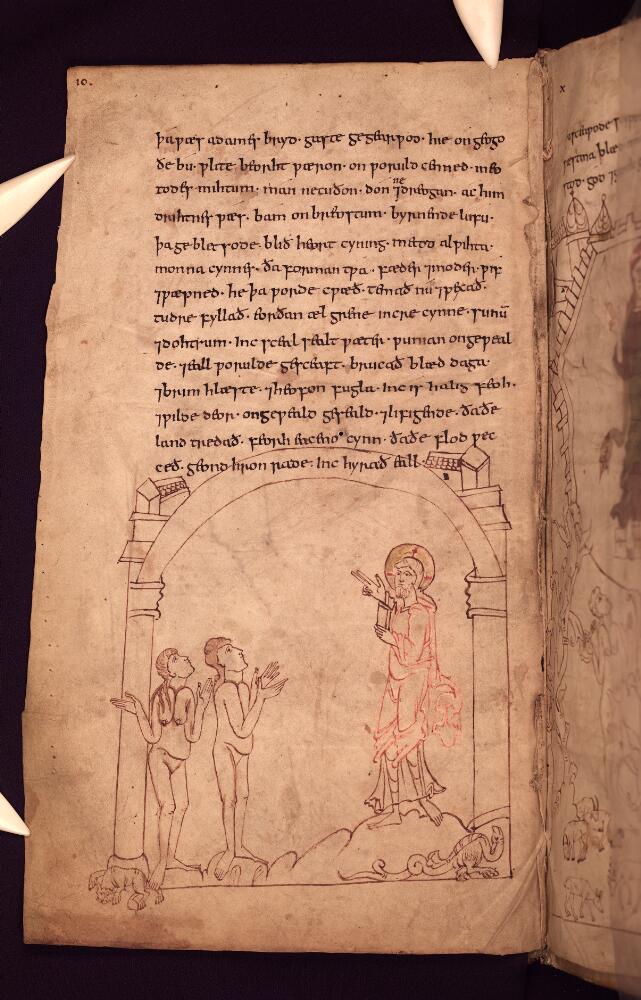 10.
þa wæs adames· bryd· gaste gegearwod· hie on geogo
ðe bu· wlite beorht wæron· on woruld cenned· meo
todes mihtum· man ne cuðon· don ne ⁊dreogan· ac him
drihtnes wæs· bam on breostum· byrnende lufu·
þa gebletsode· blið heort cyning· metod alwihta·
monna cynnes· ða forman twa·· fæder ⁊moder· wif
⁊wæpned· he þa worde cwæð· temað nu ⁊wexað·
tudre fyllað· eorðan æl grene incre cynne· sunū
⁊dohtrum· Inc sceal sealt wæter· wunian on geweal
de· ⁊eall worulde gesceaft· brucað blæd daga·
⁊brim hlæste· ⁊heofon fugla· Inc is halig feoh·
⁊wilde deor· on geweald geseald· ⁊lifigende· ðaðe
land tredað· feorh eaceno cynn· ðaðe flod wec
ceð· geond hron rade· Inc hyrað eall·
x